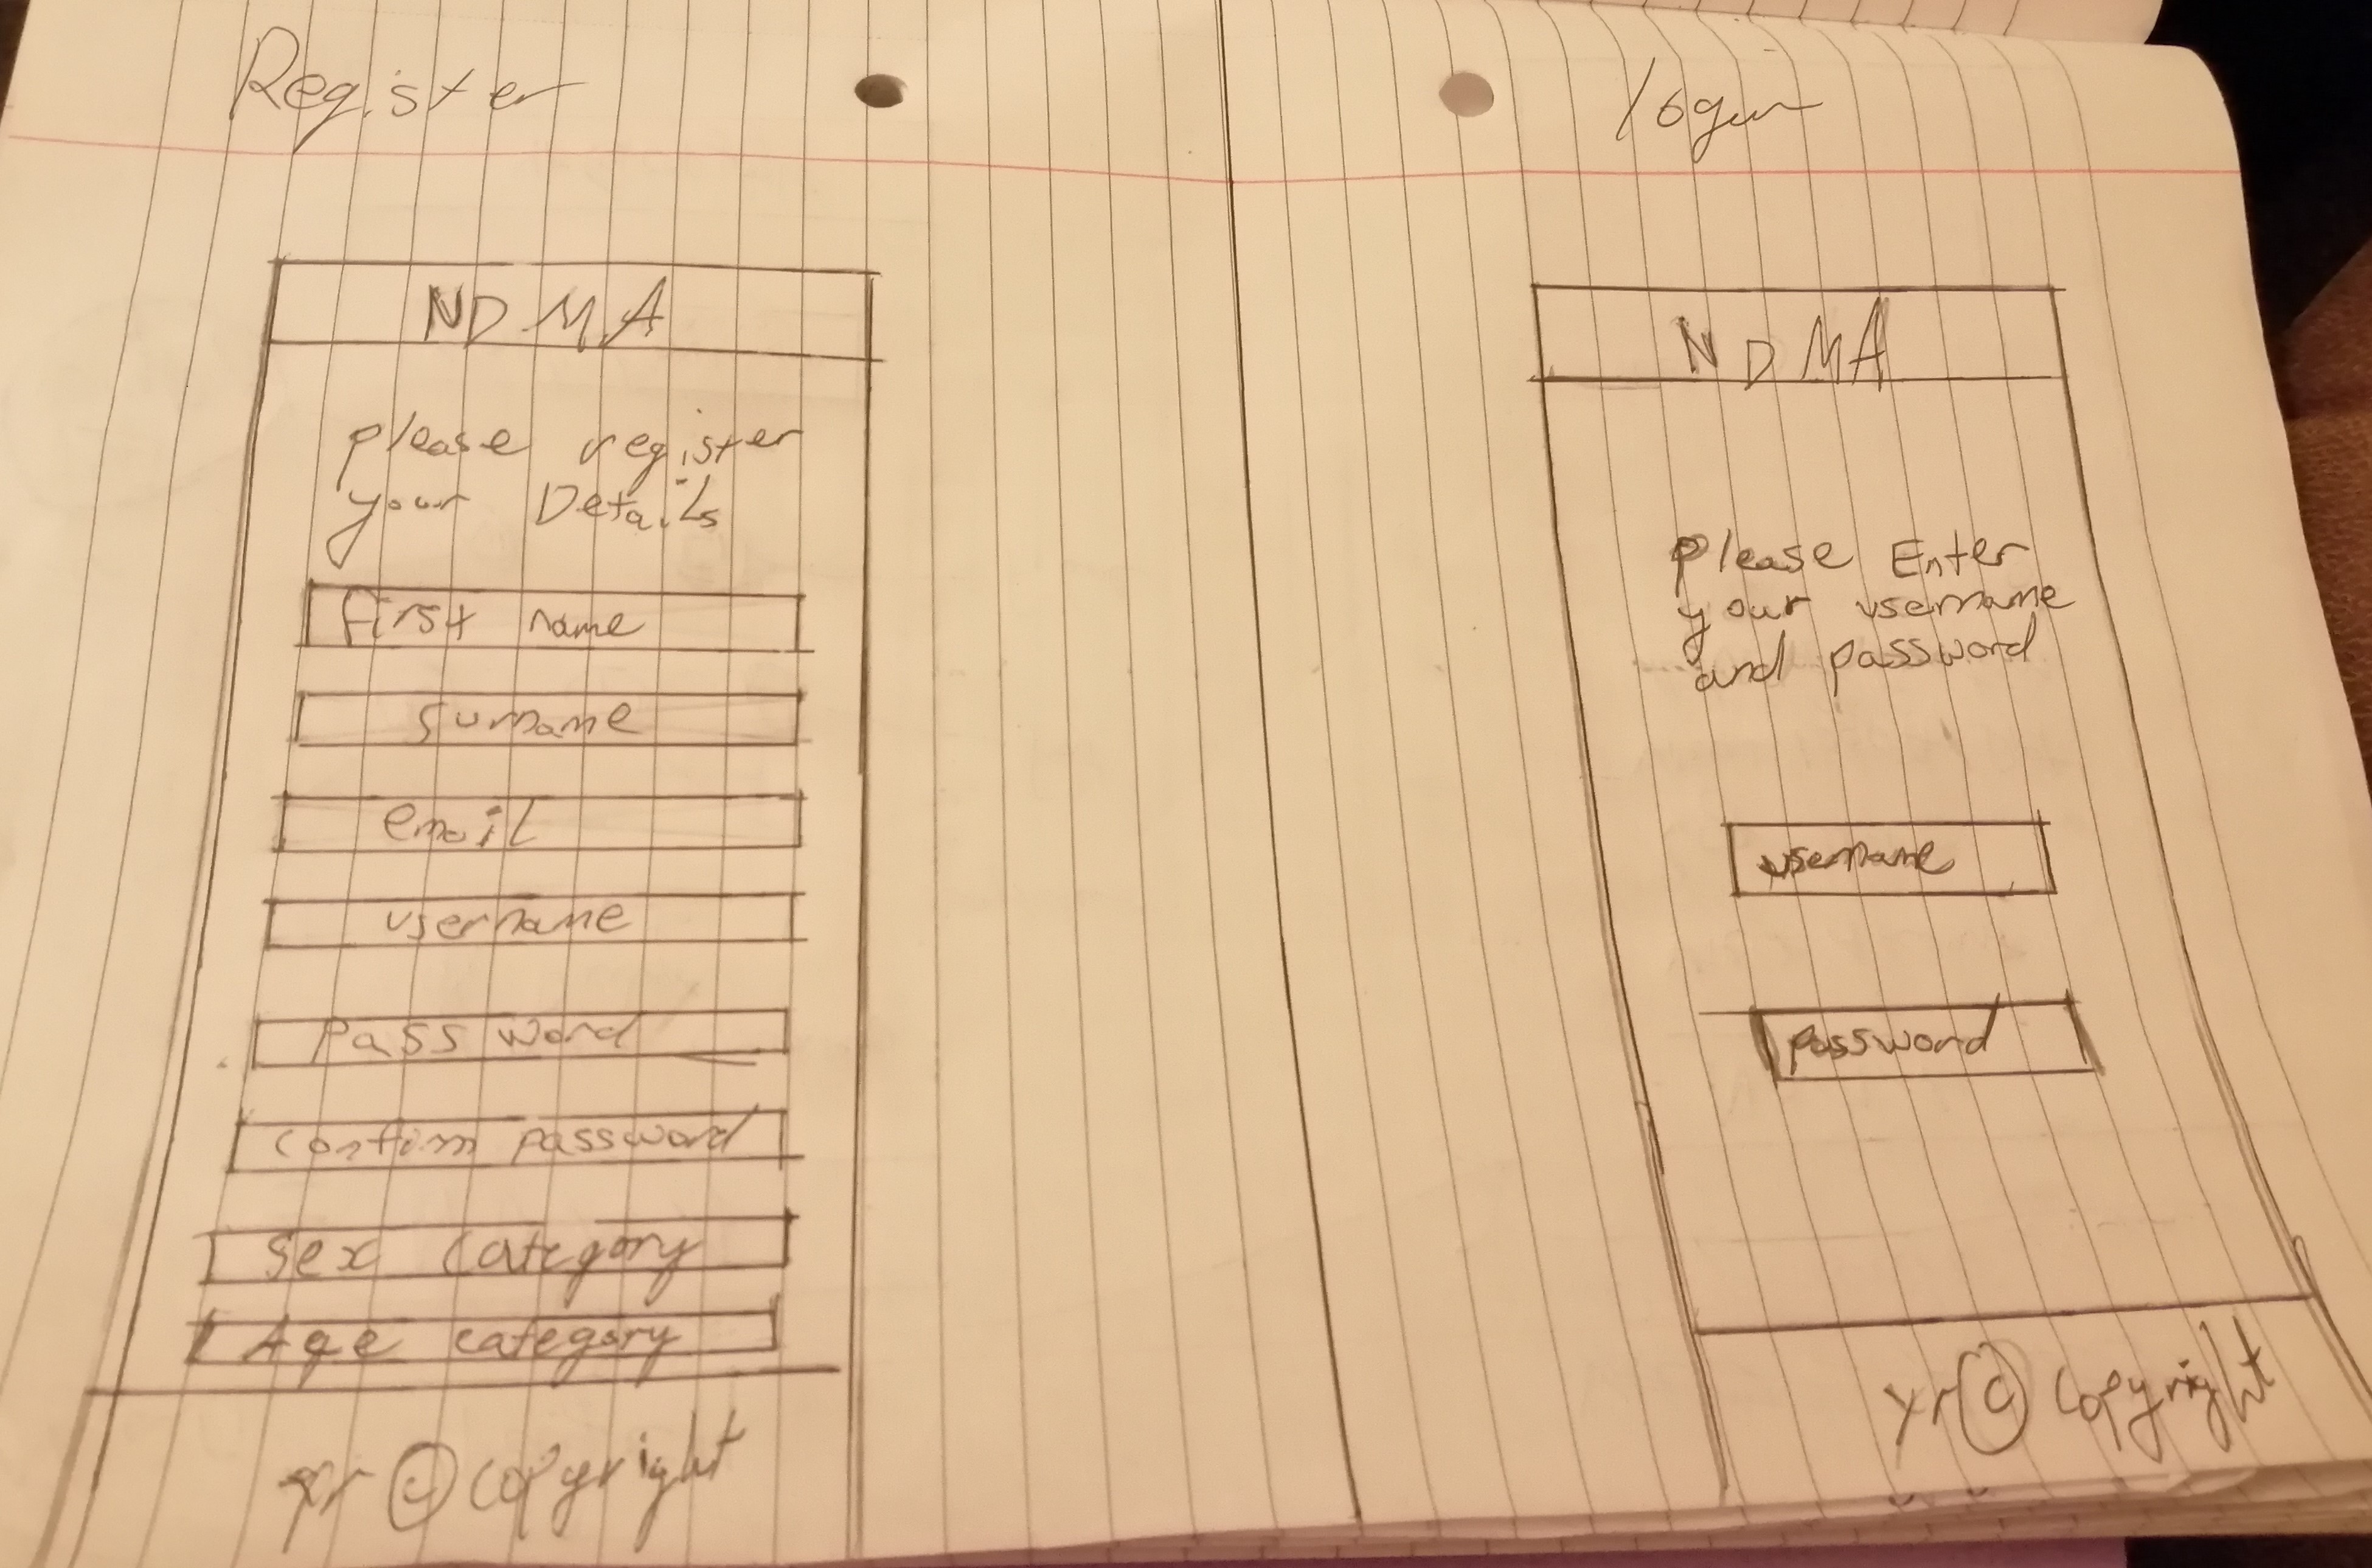 Register
NDMA
please register
your Details
First name
surname
email
username
Password
Confirm password
Sex category
Age category
yr © Copyright
login
NDMA
please Enter
your username
and password
username
password
yr © Copyright